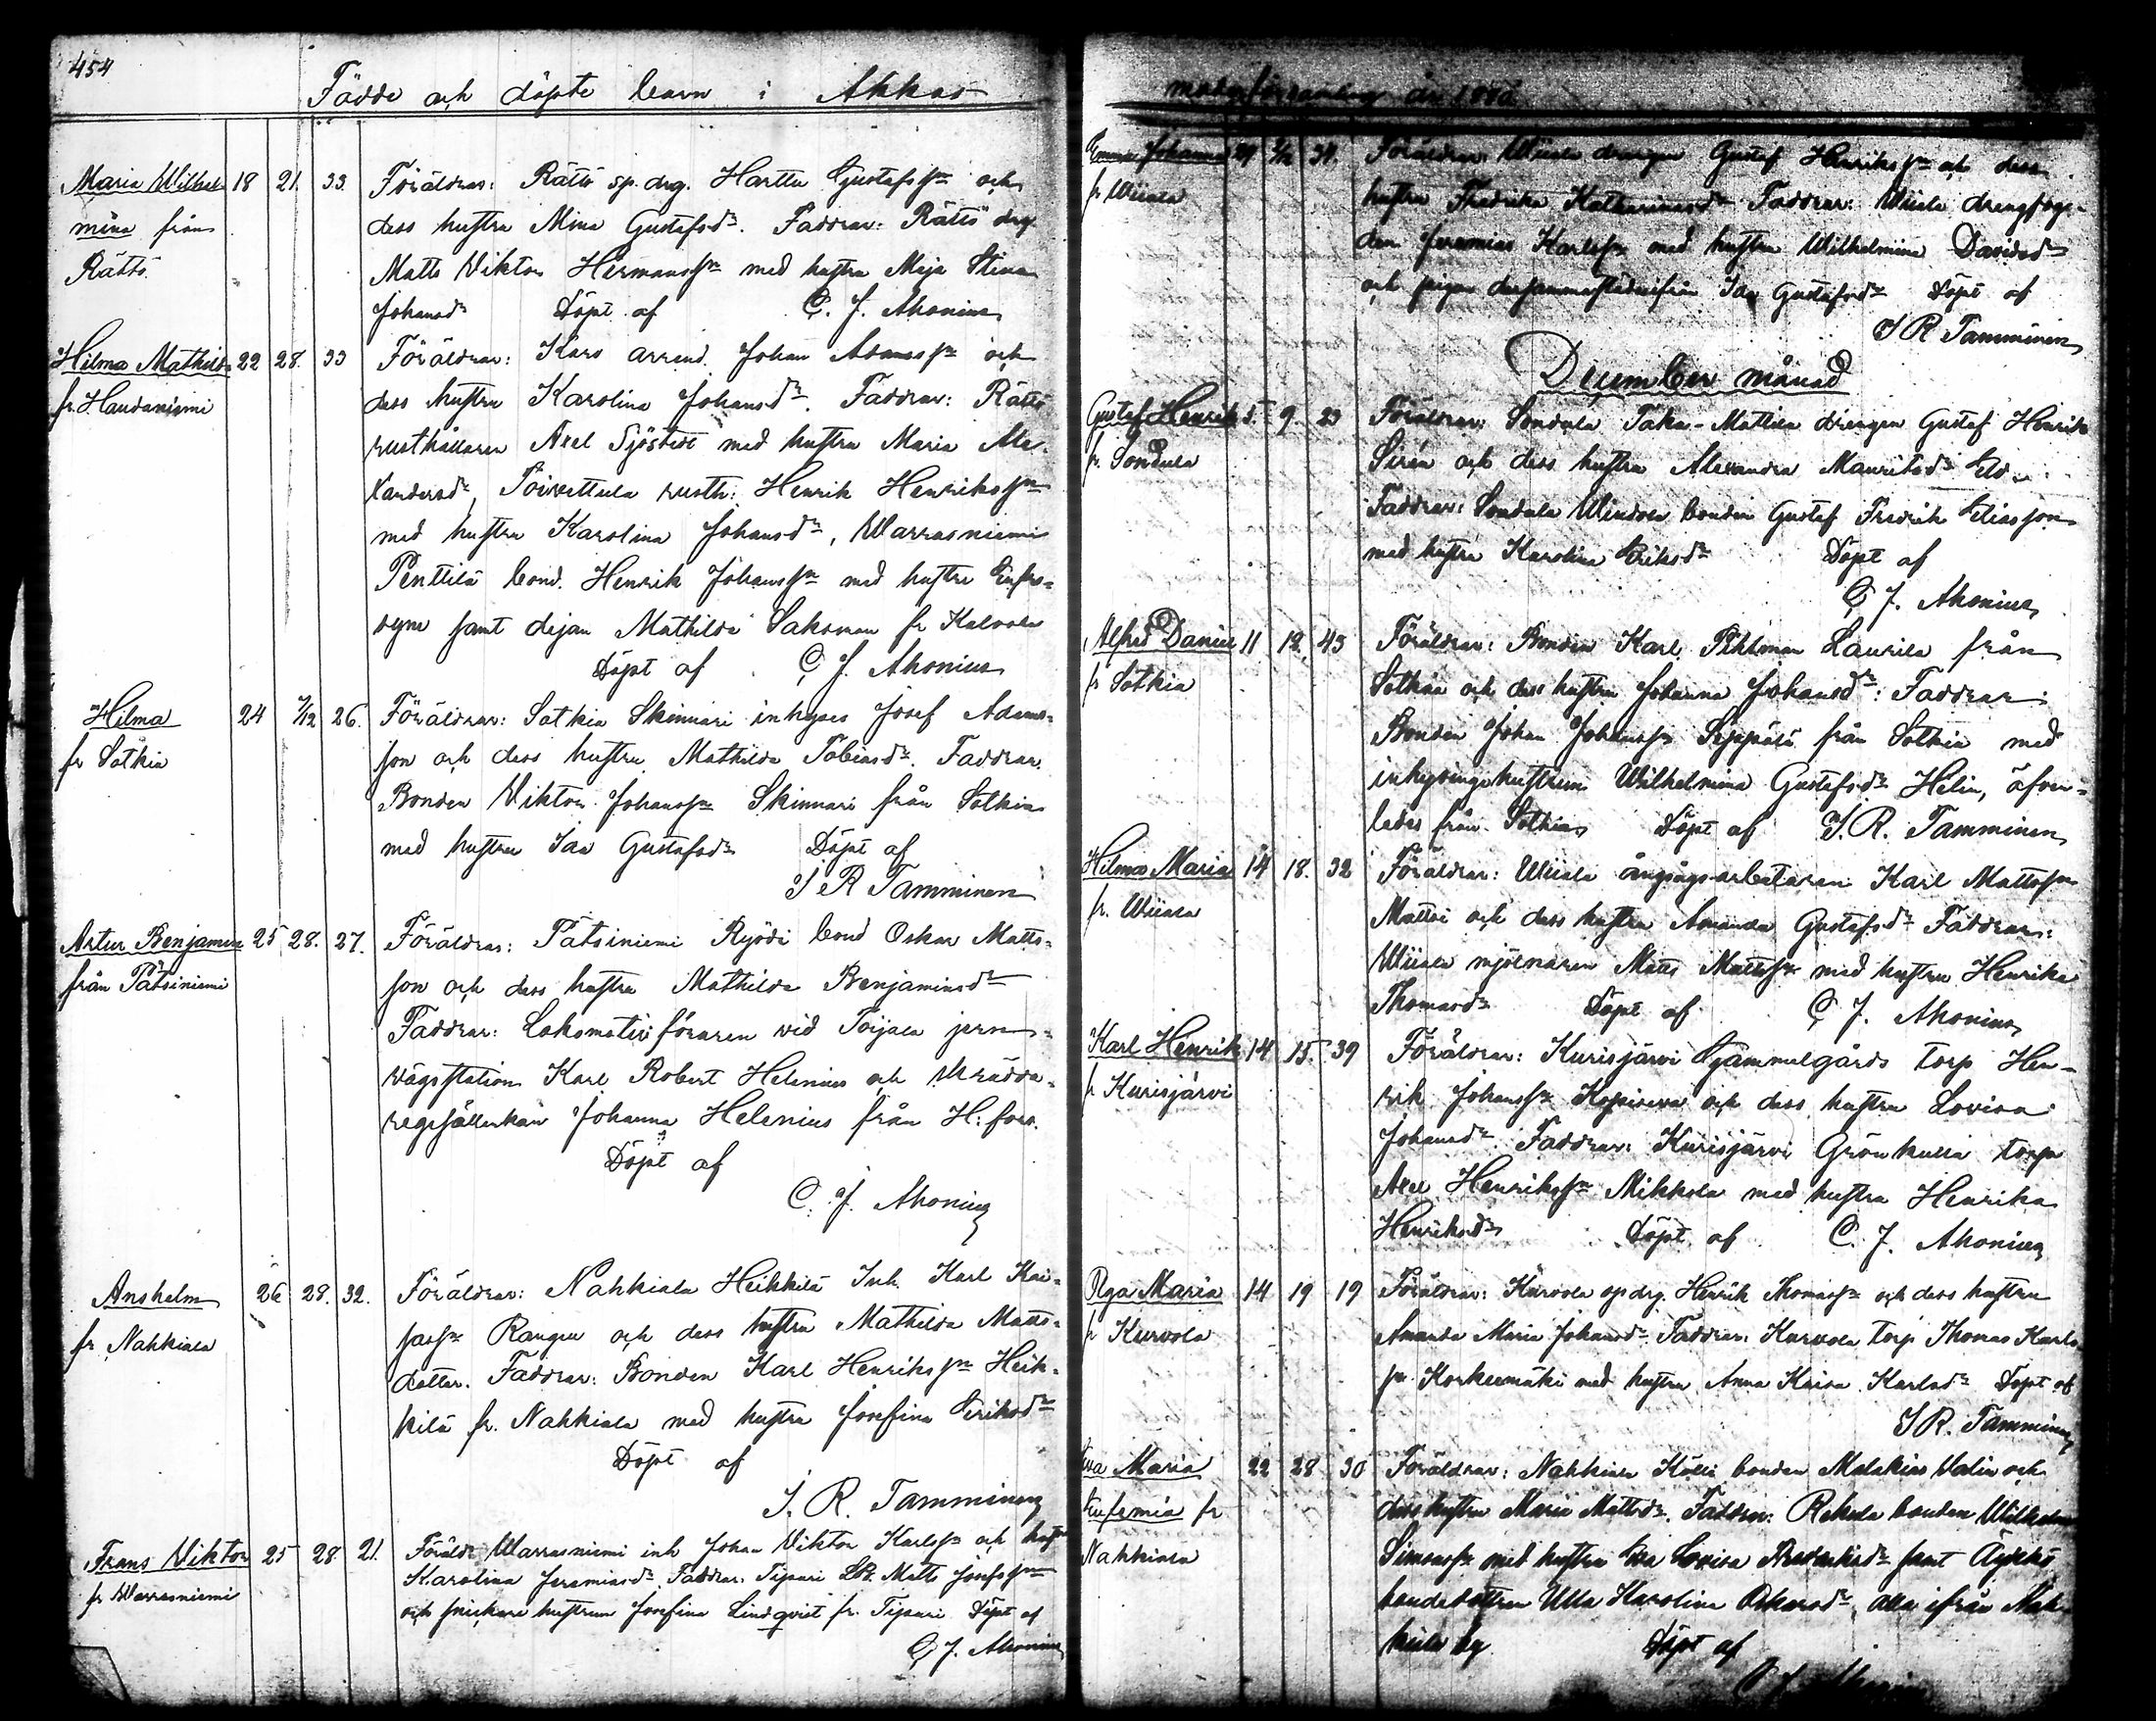 454
Födde och döpte barn i Akkas
Maria Wilhel 18 21. 33. Föräldrar: Rättö sp. drg. Gustafss:n och
mina från dess hustru Mina Gustafsd:r. Faddrar: Rättö drg.
Rättö. Matts Viktor Hermanss:n med hustru Maja Stina
Johansd:r Döpt af C. J. Ahonius
Hilma Mathilda 22 28. 33 Föräldrar: arrend. Johan Adamss:n och
fr. Haudaniemi dess hustru Karolina Johansd:r. Faddrar: Rättö
rusthållaren Axel Sjöstedt med hustru Maria Ale-
xandersd:r, Toivettula rusth: Henrik Henrikss:n
med hustru Karolina Johansd:r, Warrasniemi
Penttilä bond. Henrik Johanss:n med hustru Eufro-
syne samt dejan Mathilda fr Kalvola
Döpt af C. J. Ahonius
Hilma 24 7/12 26. Föräldrar: Sotkia Skinnari inhyses Josef Adams-
fr Sotkia son och dess hustru Mathilda Tobiasd:r. Faddrar.
Bonden Viktor Johanss:n Skinnari från Sotkia
med hustru Ida Gustafsd:r Döpt af
J R Tamminen
Artur Benjamin 25 28. 27. Föräldrar: Pätsiniemi Ryödi bond Oskar Matts-
från Pätsiniemi son och dess hustru Mathilda Benjaminsd:r
Faddrar: Lokomotivföraren vid Toijala jern-
vägsstation Karl Robert Helenius och
Johanna Helenius från H:fors.
Döpt af
C. J. Ahonius
Anshelm 26 28. 32. Föräldrar: Nahkiala Heikkilä Inh. Karl Kai-
fr. Nahkiala sass:n och dess hustru Mathilda Matts-
dotter. Faddrar: Bonden Karl Henrikss:n Heik-
kilä fr. Nahkiala med hustru Josefina Eriksd:r
Döpt af
J. R. Tamminen
Frans Viktor 25 28. 21. Föräldr: Warrasniemi inh Johan Viktor Karlss:n och hustru
fr Warrasniemi Karolina Jeremiasd:r Faddrar: Tipuri Matts Josefss:n
och snickare hustrun Josefina Lindqvist fr. Tipuri Döpt af
C. J. Ahonius
moderförsamling år
Emma Johanna 29 7/12 34. Föräldrar: Wiiala drengen Gustaf Henrikss:n och dess
fr Wiiala hustru Fredrika Katharinasd:r Faddrar: Wiiala drengfog-
den Jeremias Karlss:n med hustru Wilhelmina Davidsd:r
och pigan dersammastädesifrån Ida Gustafsd:r Döpt af
J R Tamminen
December månad
Gustaf Henrik 5 9. 23 Föräldrar: Sondula Taka-Mattila drengen Gustaf Henrik
fr. Sondula Sirén och dess hustru Alexandra Mauritsd:r
Faddrar: Sondula bonden Gustaf Fredrik Eliasson
med hustru Karolina Eriksd:r Döpt af
C J. Ahonius
Alfred Daniel 11 12. 43 Föräldrar: Bonden Karl Pihlman Laurila från
fr Sotkia Sotkia och dess hustru Johanna Johansd:r: Faddrar:
Bonden Johan Johanss:n Seppälä från Sotkia med
inhysinge hustrun Wilhelmina Gustafsd:r Helin, äfven-
ledes från Sotkia Döpt af J. R. Tamminen
Hilma Maria 14 18. 32 Föräldrar: Wiiala ångsågsarbetaren Karl Mattss:n
fr. Wiiala och dess hustru Amanda Gustafsd:r Faddrar:
Wiiala mjölnaren Matts Mattss:n med hustru Henrika
Thomasd:r Döpt af C J. Ahonius
Karl Henrik 14 15. 39 Föräldrar: Kurisjärvi Gammalgårds torp Hen-
fr Kurisjärvi rik Johanss:n och dess hustru Lovisa
Johansd:r Faddrar: Kurisjärvi Grönkulla torp
Axel Henrikss:n Mikkola med hustru Henrika
Henriksd:r Döpt af C. J. Ahonius
Olga Maria 14 19 19 Föräldrar: Kurvola drg. Henrik Thomass:n och dess hustru
fr Kurvola Amanda Maria Johansd:r Faddrar: Kurvola torp Thomas Karls
s:n Korkeemäki med hustru Anna Kaisa Karlsd:r Döpt af
J R. Tamminen
Eva Maria 22 28 30 Föräldrar: Nahkiala Kölli bonden Malakias Valin och
Eufemia fr dess hustru Maria Mattsd:r. Faddrar: Rekola bonden Wilhelm
Nahkiala Simonss:n med hustru Eva Lovisa samt
bondedottren Ulla Karolina Oskarsd:r, alla ifrån Nah-
kiala by. Döpt af